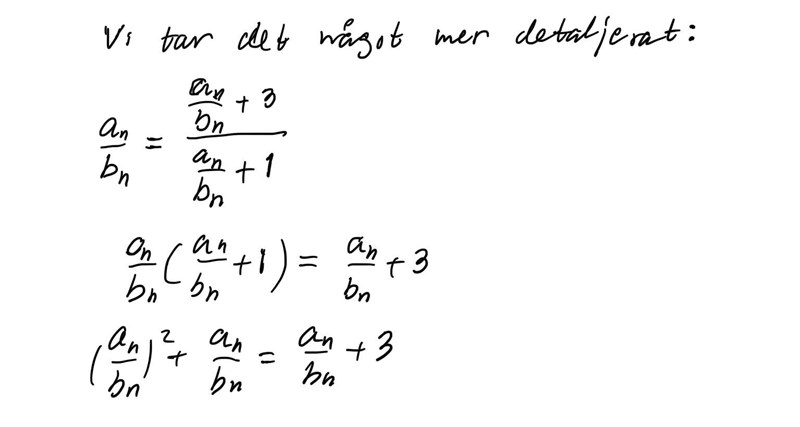 Vi tar det något mer detaljerat:
a_n/b_n = (a_n/b_n + 3)/(a_n/b_n + 1)
a_n/b_n (a_n/b_n + 1) = a_n/b_n + 3
(a_n/b_n)² + a_n/b_n = a_n/b_n + 3